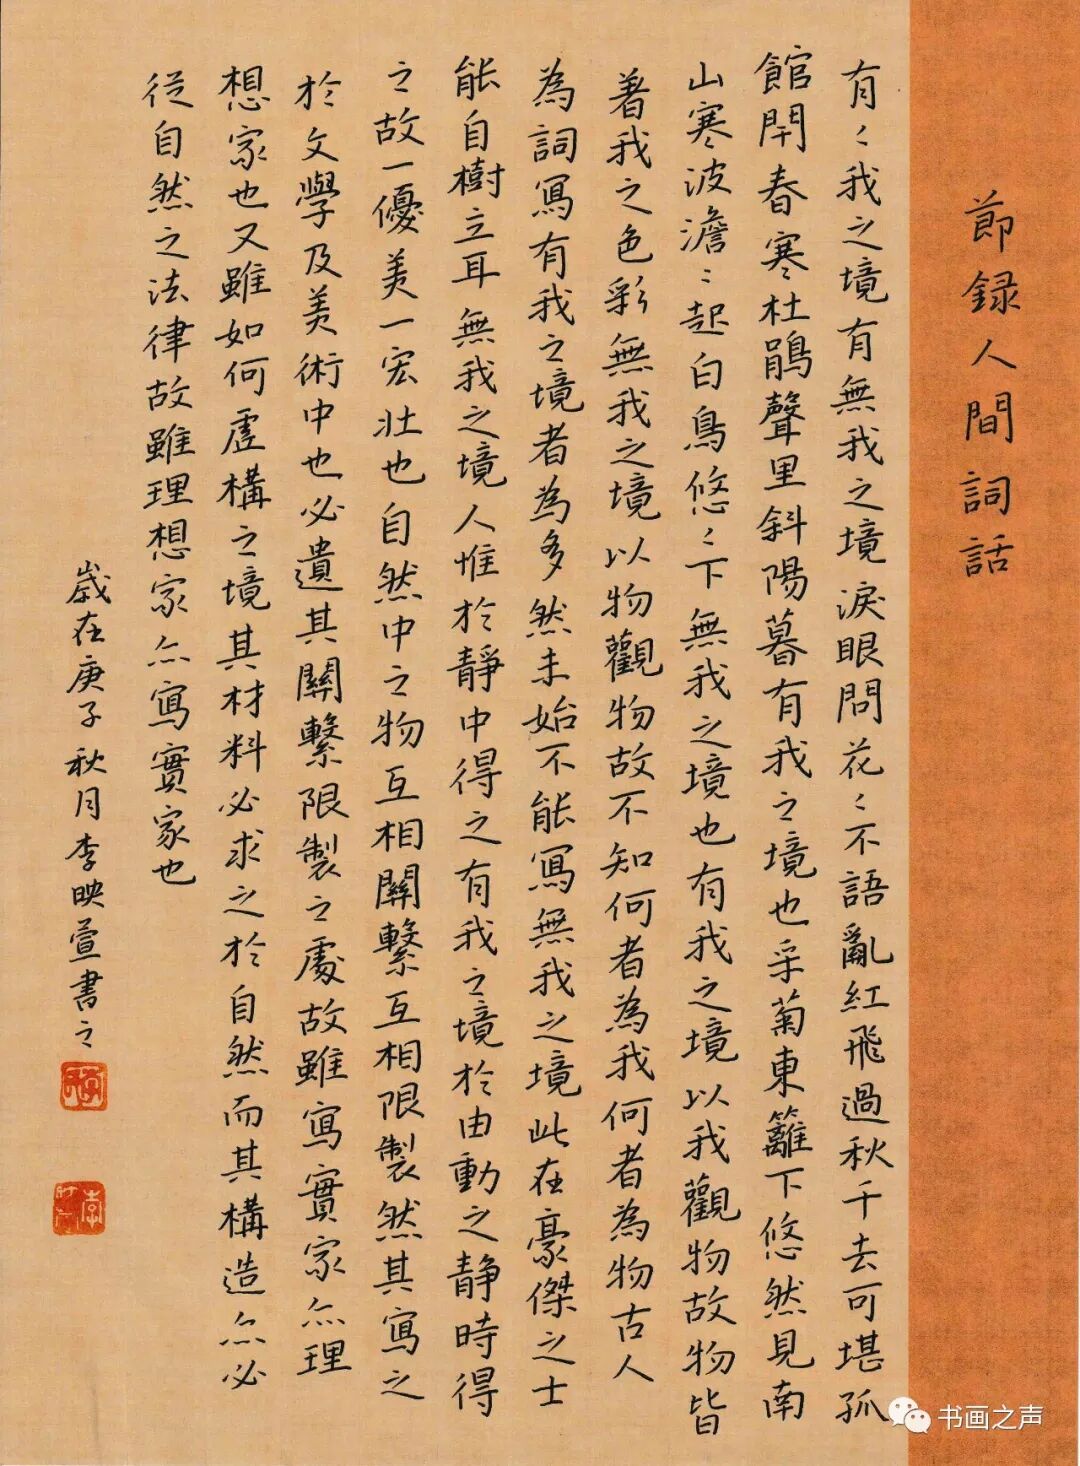 節録人間詞話
有〻我之境有無我之境淚眼問花〻不語亂紅飛過秋千去可堪孤
館閇春寒杜鵑聲里斜陽暮有我之境也采菊東籬下悠然見南
山寒波澹〻起白鳥悠〻下無我之境也有我之境以我觀物故物皆
著我之色彩無我之境以物觀物故不知何者為我何者為物古人
為詞寫有我之境者為多然未始不能寫無我之境此在豪傑之士
能自樹立耳無我之境人惟於靜中得之有我之境於由動之静時得
之故一優美一宏壯也自然中之物互相關繫互相限製然其寫之
於文學及美術中也必遺其關繫限製之處故雖寫實家亦理
想家也又雖如何虛構之境其材料必求之於自然而其構造亦必
從自然之法律故雖理想家亦寫實家也
歲在庚子秋月李映萱書之
书画之声